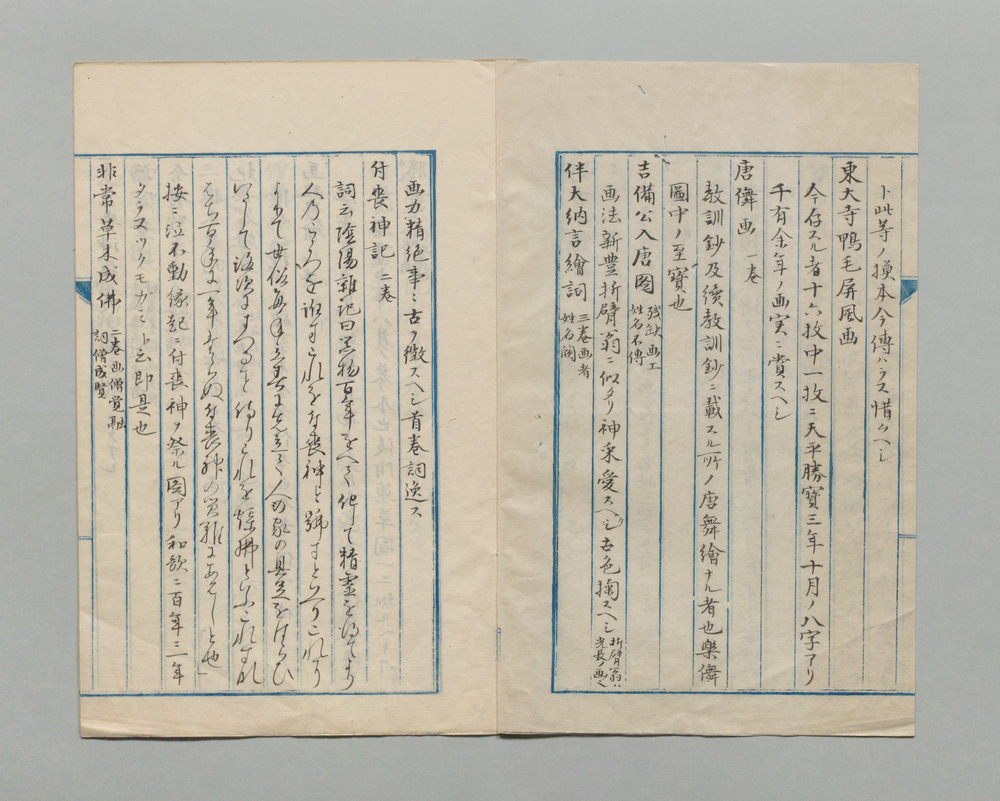 ト此等ノ摸本今傳ハラス惜クヘシ
東大寺鴨毛屏風画
今存スル者十六枚中一枚ニ天平勝寶三年十月ノ八字アリ
千有余年ノ画実ニ賞スヘシ
唐儛画 一巻
教訓鈔及續教訓鈔ニ載スル所ノ唐舞繪ナル者也樂儛
圖中ノ至寳也
吉備公入唐圖 残缺画工姓名不傳
画法新豊折臂翁ニ似タリ神采愛スヘシ古色掬スヘシ 折臂翁ハ光長ノ画也
伴大納言繪詞 三巻画者姓名闕
画力精絶事ミ古ヲ徴スヘシ首巻詞逸ス
付喪神記 二巻
詞云陰陽雜記曰器物百年をへて化して精霊を得てより
人の心を誑すこれを付喪神と號すといへりこれより
よりて世俗毎年立春に先立て人の家の具足を
はらひ
いたして路次にすつること侍りこれを煤拂といふこれすなはち
百年に一年たらぬ付喪神の災難にあはしと也
按ニ泣不動縁起ニ付喪神ヲ祭ル圖アリ和歌ニ百年ニ一年
タラヌツクモカミト云即是也
非常草木成佛 二巻画僧覚融詞僧成賢